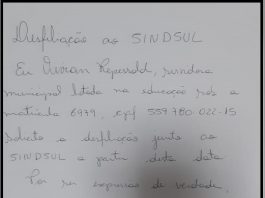 Desfiliação ao SINDSUL
Eu Vivian Repersold, servidora
municipal lotada na educação sob a
matrícula 6979, cpf 559.780.022-15
solicito a desfiliação junto ao
SINDSUL a partir desta data
Por ser expressão de verdade.